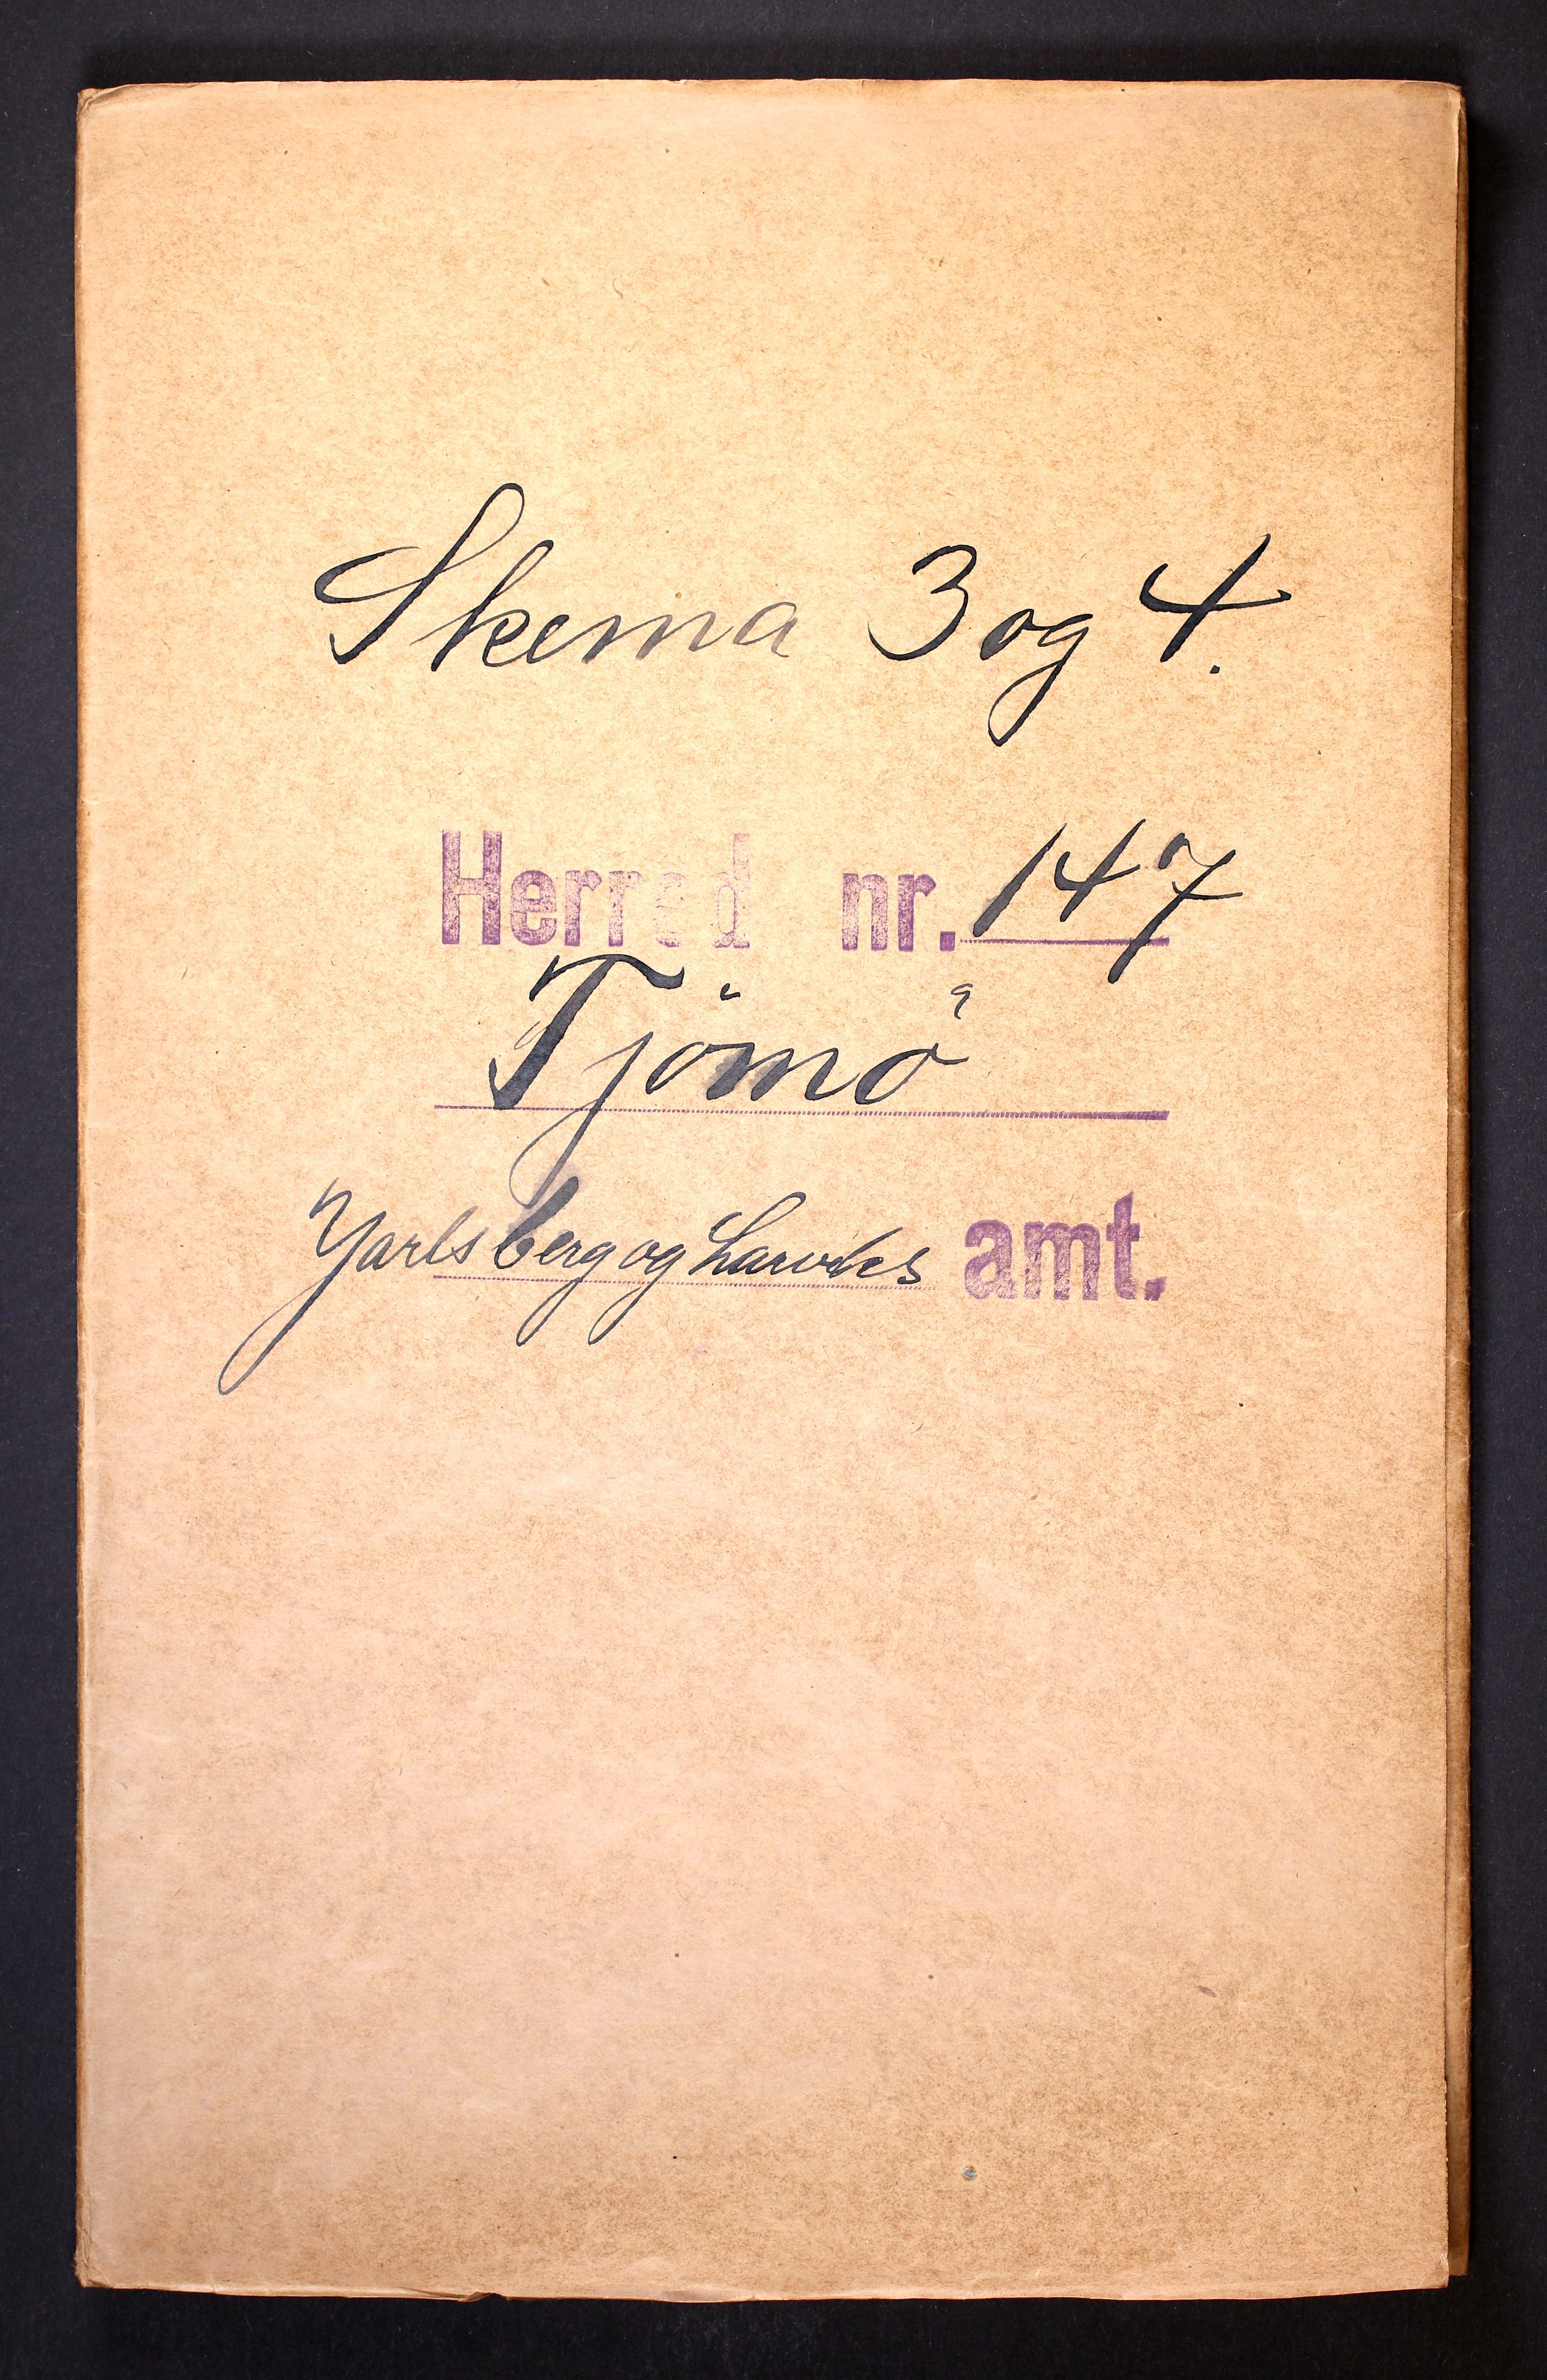 Skema 3 og 4.
Herred nr. 147
Tjömö
Jarlsberg og Larviks amt.